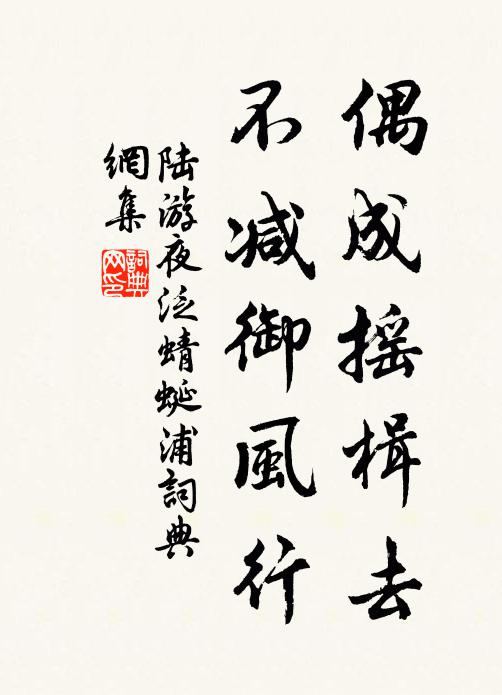 偶成摇楫去
不减御風行
陆游夜泛蜻蜒浦詞典
網集
詞典
网印